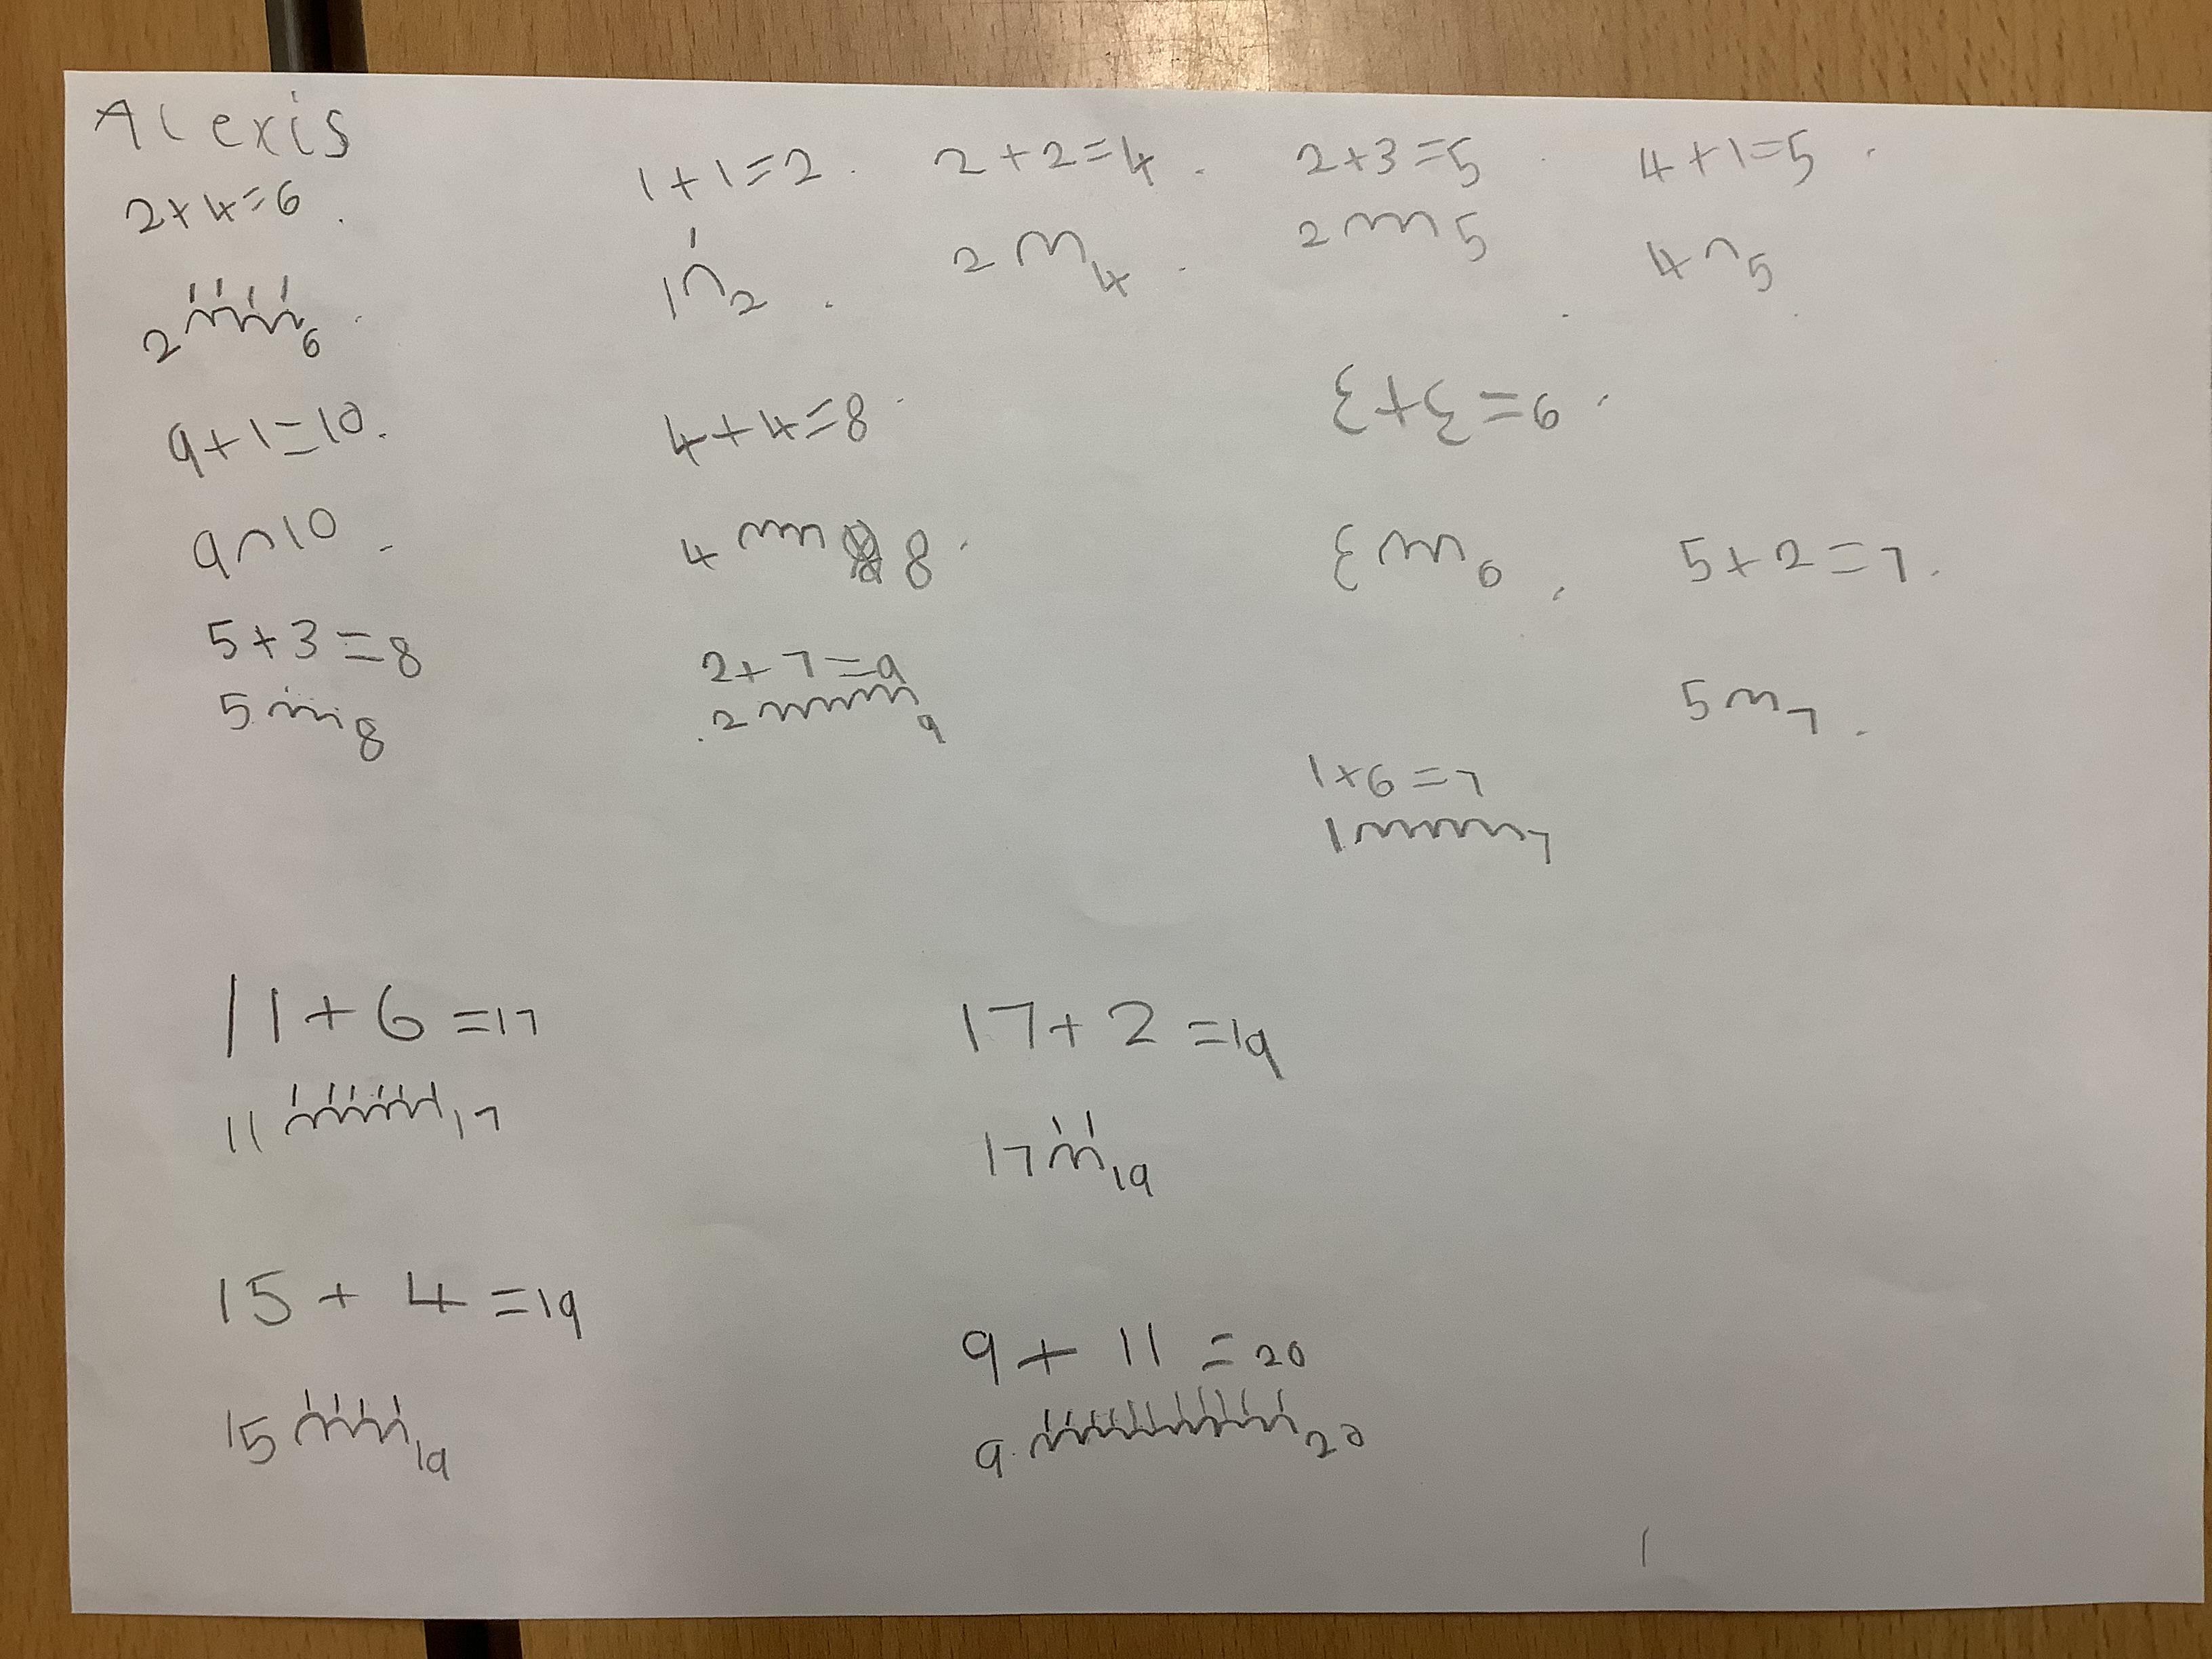 Alexis
2+4=6 1+1=2 2+2=4 2+3=5 4+1=5
2 6 1 2 2 4 2 5 4 5
9+1=10 4+4=8 3+3=6
9 10 4 8 3 6 5+2=7
5+3=8 2+7=9
5 8 2 9 5 7
1+6=7
1 7
11+6=17 17+2=19
11 17 17 19
15+4=19 9+11=20
15 19 9 20